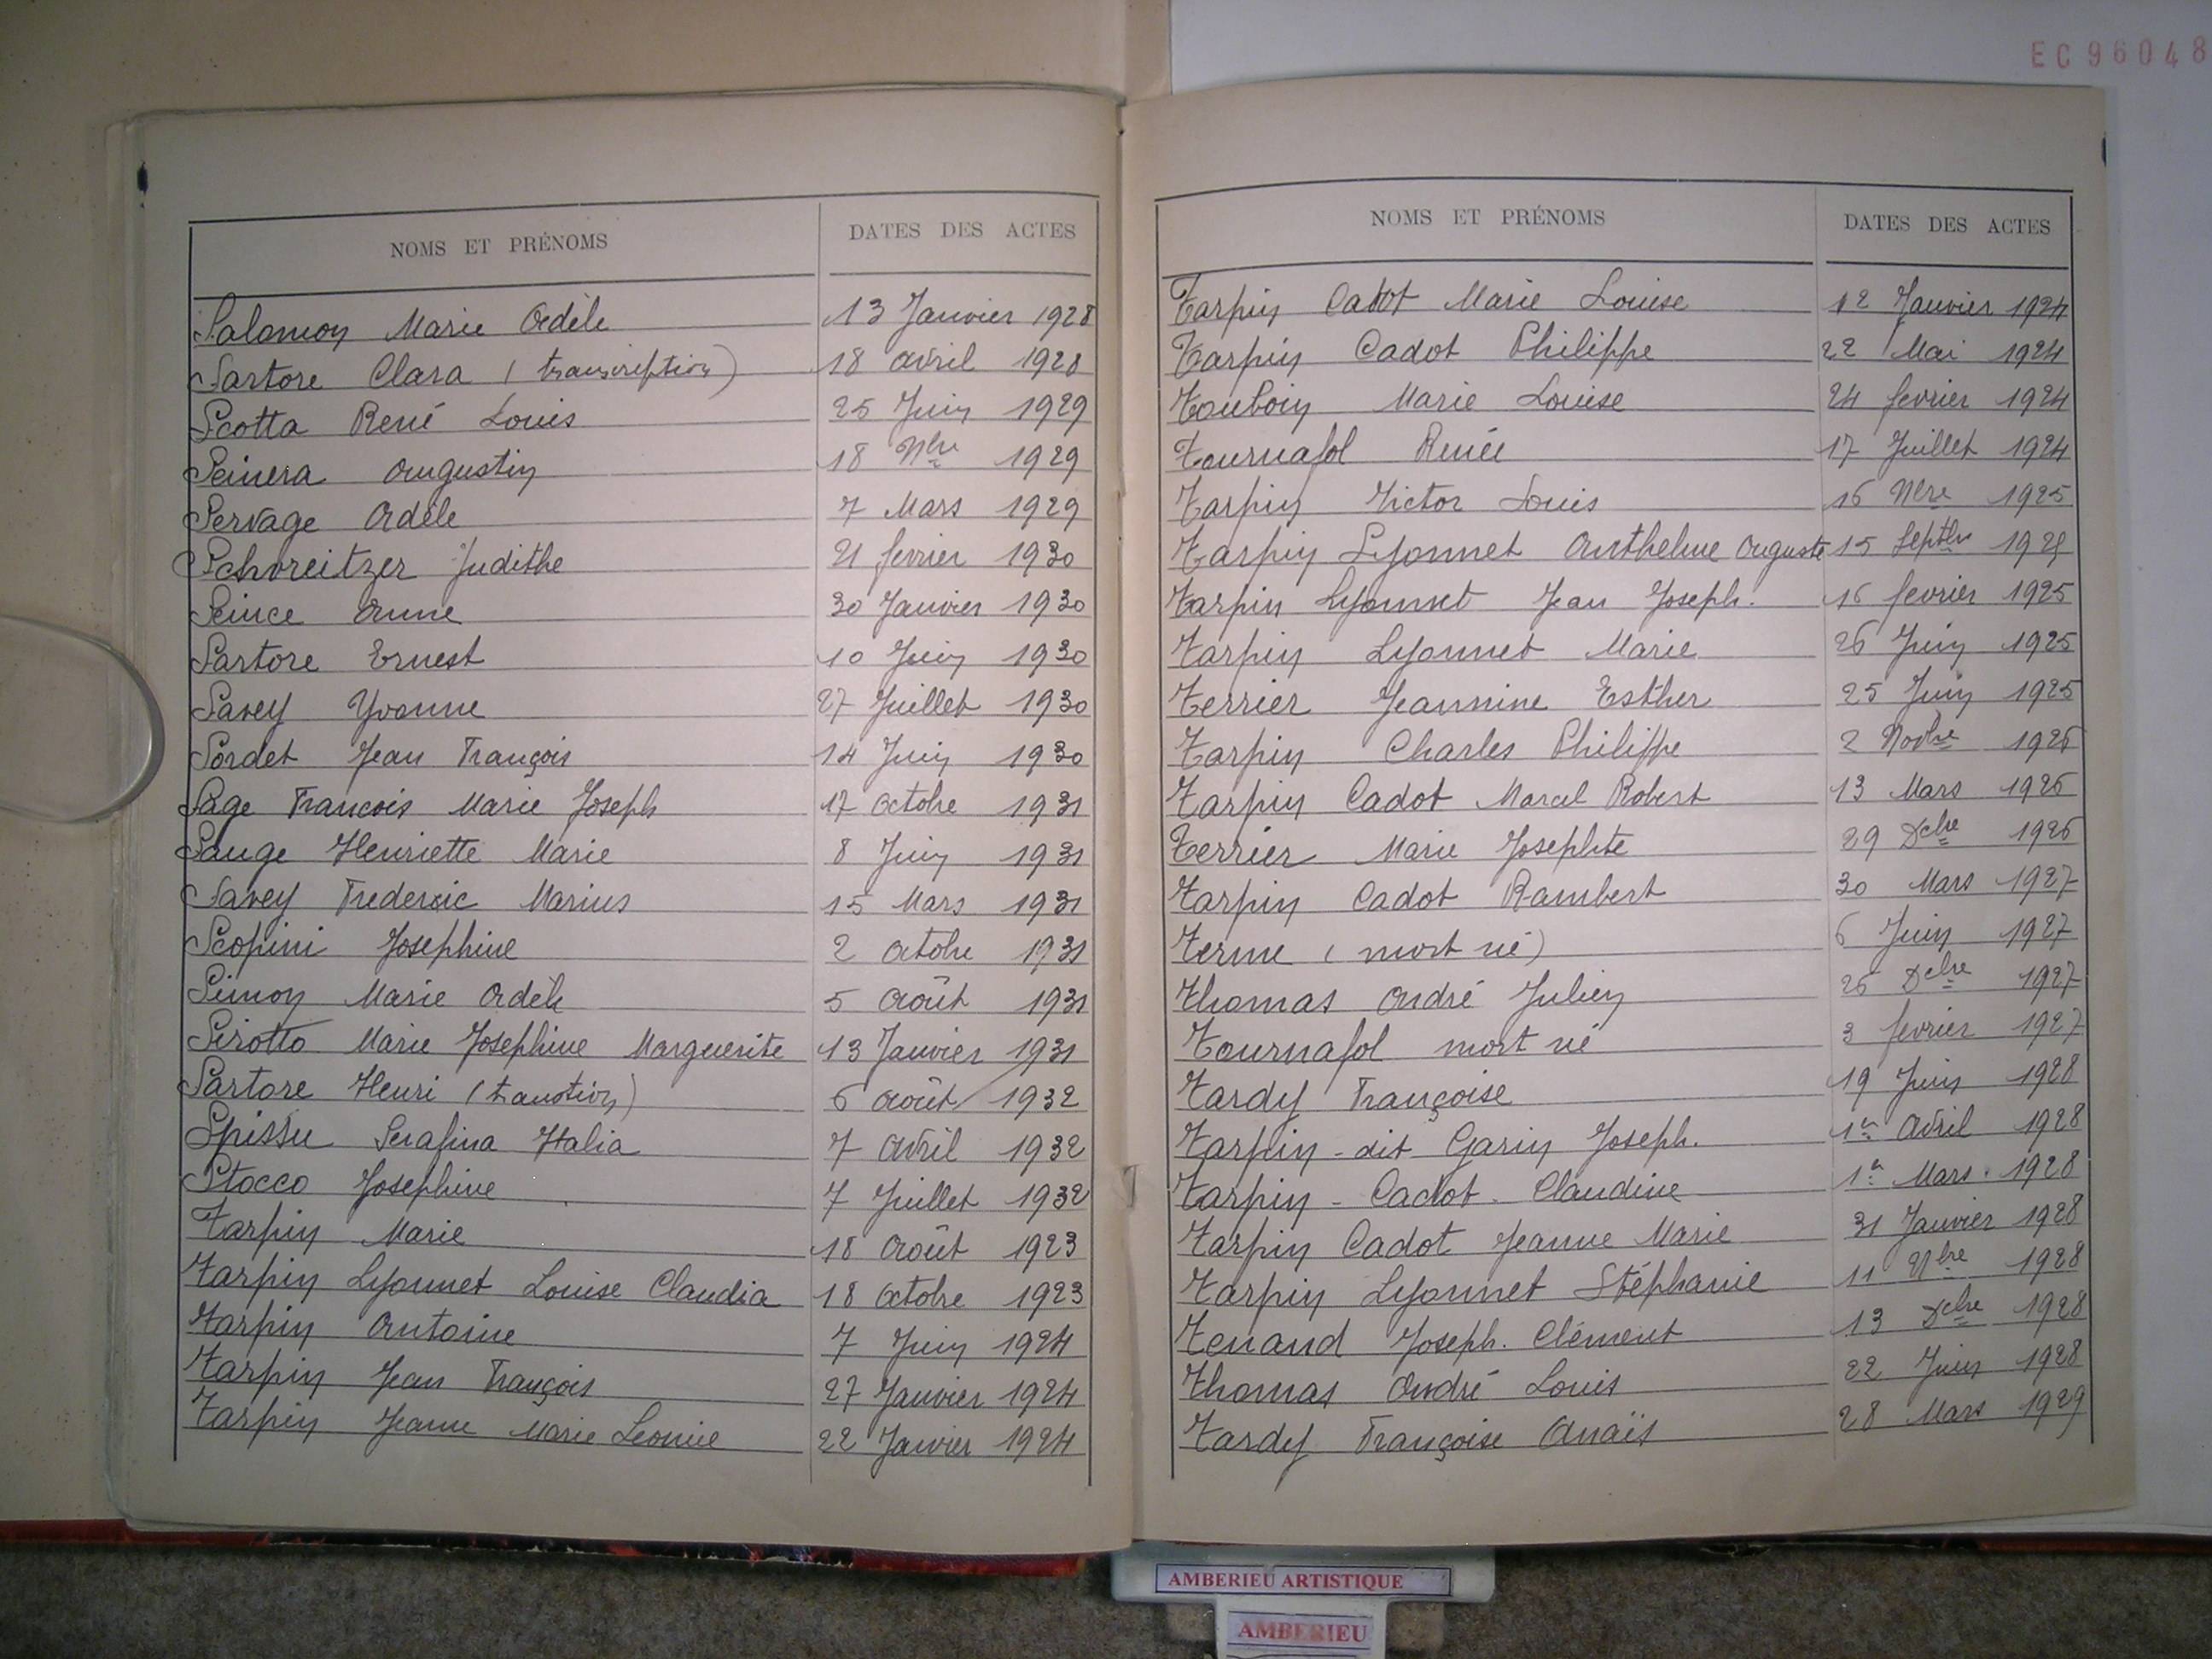 EC96048
NOMS ET PRÉNOMS DATES DES ACTES
Salomon Marie Adèle 13 Janvier 1928
Sartore Clara (transcription) 18 avril 1928
Scotta René Louis 25 Juin 1929
Seinera Augustin 18 Nbre 1929
Servage Adèle 7 Mars 1929
Schvreitzer Judithe 21 fevrier 1930
Seince Anne 30 Janvier 1930
Sartore Ernest 10 Juin 1930
Savey Yvonne 27 Juillet 1930
Sordet Jean François 14 Juin 1930
Sage Francois Marie Joseph 17 Octobre 1931
Sauge Henriette Marie 8 Juin 1931
Savey Frederic Marius 15 Mars 1931
Scopini Josephine 2 Octobre 1931
Simon Marie Adèle 5 Août 1931
Sirotto Marie Josephine Marguerite 13 Janvier 1931
Sartore Henri (tranotion) 6 Août 1932
Spissu Serafina Italia 7 Avril 1932
Stocco Josephine 7 Juillet 1932
Tarpin Marie 18 Août 1923
Tarpin Lyonnet Louise Claudia 18 Octobre 1923
Tarpin Antoine 7 Juin 1924
Tarpin Jean François 27 Janvier 1924
Tarpin Jeanne Marie Leonie 22 Janvier 1924
NOMS ET PRÉNOMS DATES DES ACTES
Tarpin Cadot Marie Louise 12 Janvier 1924
Tarpin Cadot Philippe 22 Mai 1924
Touboin Marie Louise 24 fevrier 1924
Tournafol Renée 17 Juillet 1924
Tarpin Victor Louis 16 Nbre 1925
Tarpin Lyonnet Anthelme Auguste 15 Septbre 1925
Tarpin Lyonnet Jean Joseph. 16 fevrier 1925
Tarpin Lyonnet Marie 26 Juin 1925
Terrier Jeannine Esther 25 Juin 1925
Tarpin Charles Philippe 2 Novbre 1926
Tarpin Cadot Marcel Robert 13 Mars 1926
Terrier Marie Josephte 29 Dcbre 1926
Tarpin Cadot Rambert 30 Mars 1927
Terme (mort né) 6 Juin 1927
Thomas André Julien 26 Dcbre 1927
Tournafol mort né 3 fevrier 1927
Tardy Françoise 19 Juin 1928
Tarpin-dit Garin Joseph. 1er Avril 1928
Tarpin-Cadot. Claudine 1er Mars. 1928
Tarpin Cadot Jeanne Marie 31 Janvier 1928
Tarpin Lyonnet Stéphanie 11 Nbre 1928
Tenand Joseph. Clément 13 Dcbre 1928
Thomas André Louis 22 Juin 1928
Tardy Françoise Anaïs 28 Mars 1929
AMBERIEU ARTISTIQUE
AMBERIEU